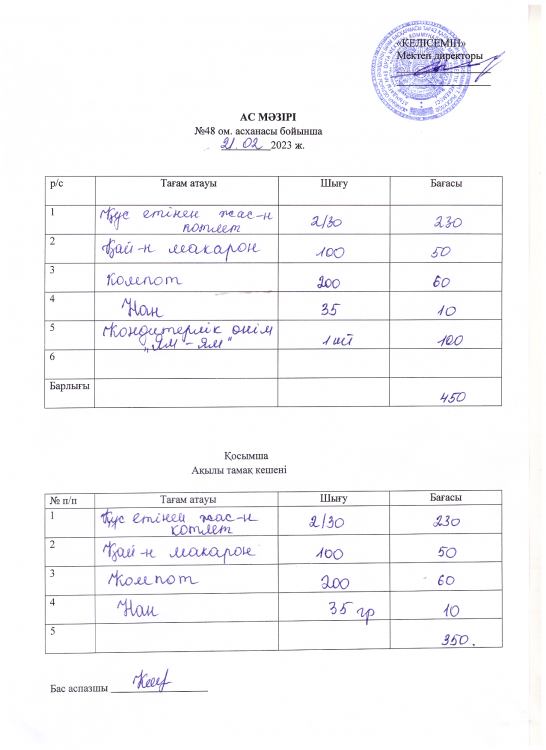 «КЕЛІСЕМІН»
Мектеп директоры
АС МӘЗІРІ
№48 ом. асханасы бойынша
21.02 2023 ж.
р/с Тағам атауы Шығу Бағасы
1 Құс етінен жас-н котлет 2/30 230
2 Қай-н макарон 100 50
3 Компот 200 60
4 Нан 35 10
5 Кондитерлік өнім „Ям-ям" 1 шт 100
6
Барлығы 450
Қосымша
Ақылы тамақ кешені
№ п/п Тағам атауы Шығу Бағасы
1 Құс етінен жас-н котлет 2/30 230
2 Қай-н макарон 100 50
3 Компот 200 60
4 Нан 35 гр 10
5 350.
Бас аспазшы